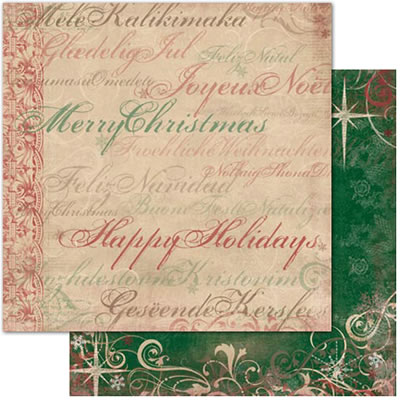 Mele Kalikimaka
Glædelig Jul
Feliz Natal
umasa Omedeto
Joyeux Noël
Merry Christmas
Froehliche Weihnachten
Nollaig Shona D
Feliz Navidad
y Christmas
Buone Feste Natalizie
Happy Holidays
ozhdestovm Kristovim
Geseënde Kersfees